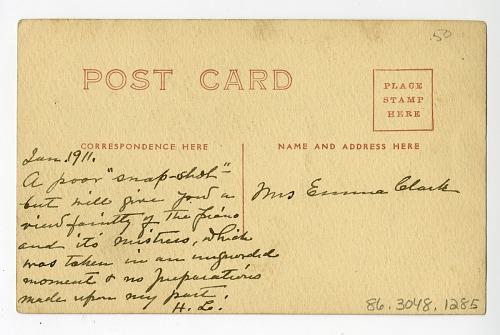 .50
POST CARD
PLACE
STAMP
HERE
CORRESPONDENCE HERE
NAME AND ADDRESS HERE
Jan. 1911.
A poor "snap-shot"-
but will give you a
view faintly of the piano
and its mistress, which
was taken in an unguarded
moment & no preparations
made upon my part.
H. L.
Mrs Emma Clark
86.3048.1285